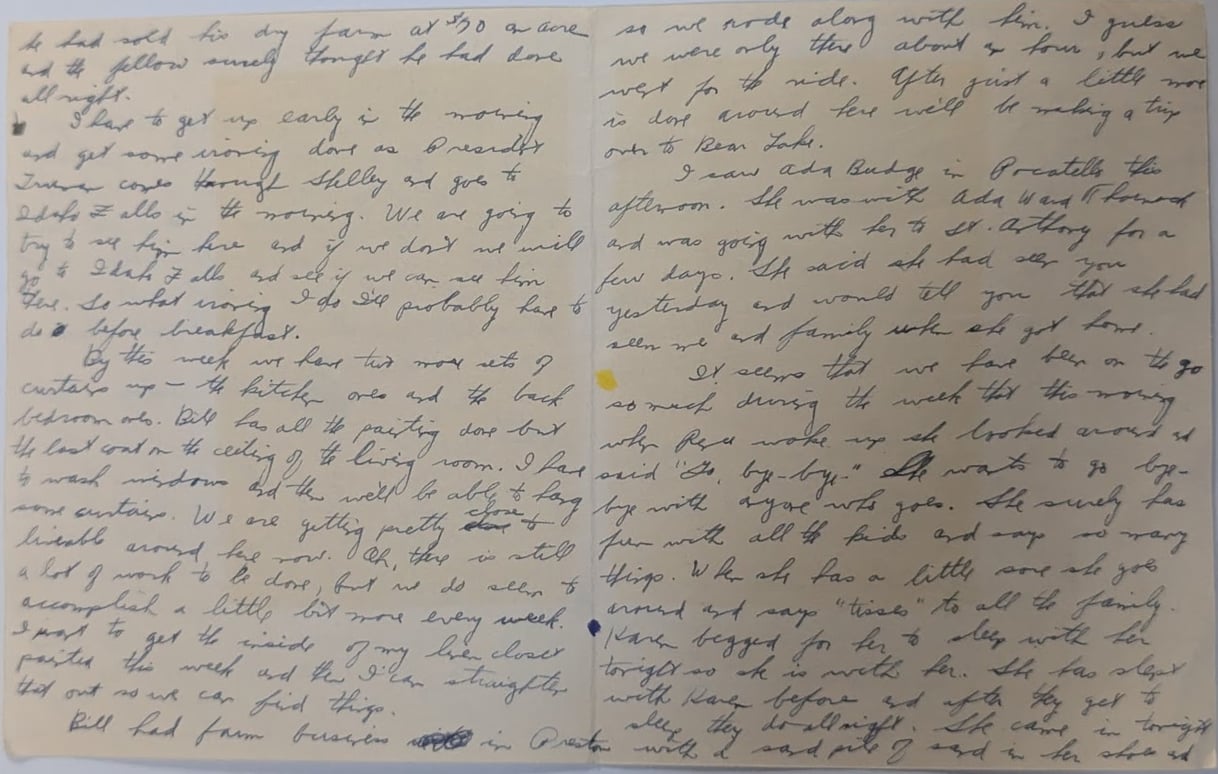 he had sold his dry farm at $70 an acre
and the fellow surely thought he had done
all right.
I have to get up early in the morning
and get some ironing done as President
Truman comes through Shelley and goes to
Idaho Falls in the morning. We are going to
try to see him here and if we don't we will
go to Idaho Falls and see if we can see him
there. So what ironing I do I'll probably have to
do before breakfast.
By this week we have two more sets of
curtains up – the kitchen ones and the back
bedroom ones. Bill has all the painting done but
the last coat on the ceiling of the living room. I have
to wash windows and then we'll be able to hang
some curtains. We are getting pretty close to
liveable around here now. Oh, there is still
a lot of work to be done, but we do seem to
accomplish a little bit more every week.
I want to get the inside of my linen closet
painted this week and then I can straighten
that out so we can find things.
Bill had farm business in Preston
so we rode along with him. I guess
we were only there about an hour, but we
went for the ride. After just a little more
is done around here we'll be making a trip
over to Bear Lake.
I saw Ada Budge in Pocatello this
afternoon. She was with Ada Ward
and was going with her to St. Anthony for a
few days. She said she had seen you
yesterday and would tell you that she had
seen me and family when she got home.
It seems that we have been on the go
so much during the week that this morning
when woke up she looked around and
said "Go, bye-bye." She wants to go bye-
bye with anyone who goes. She surely has
fun with all the kids and says so many
things. When she has a little sore she goes
around and says "tisses" to all the family.
Karen begged for her to sleep with her
tonight so she is with her. She has slept
with Karen before and after they get to
sleep they do all night. She came in tonight
with a sand pile of sand in her shoes and